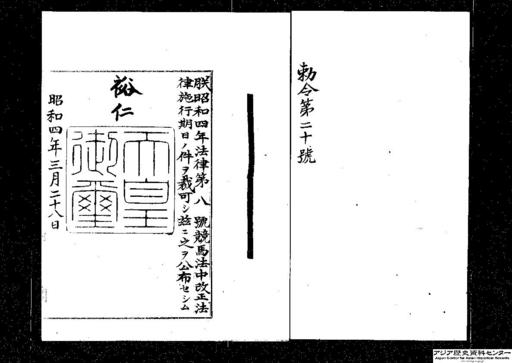 勅令第二十號
朕昭和四年法律第八號競馬法中改正法
律施行期日ノ件ヲ裁可シ茲ニ之ヲ公布セシム
裕仁
天皇
御璽
昭和四年三月二十八日
アジア歴史資料センター
Japan Center for Asian Historical Records